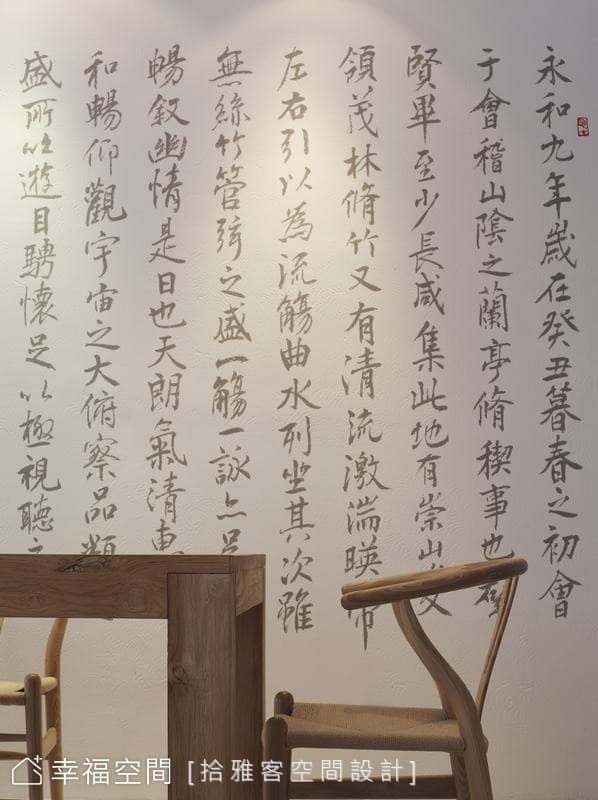 永和九年歲在癸丑暮春之初會
于會稽山陰之蘭亭脩稧事也羣
賢畢至少長咸集此地有崇山峻
領茂林脩竹又有清流激湍暎帶
左右引以為流觴曲水列坐其次雖
無絲竹管弦之盛一觴一詠亦足
暢敘幽情是日也天朗氣清惠
和暢仰觀宇宙之大俯察品類
盛所以遊目騁懷足以極視聽之
幸福空間 [拾雅客空間設計]